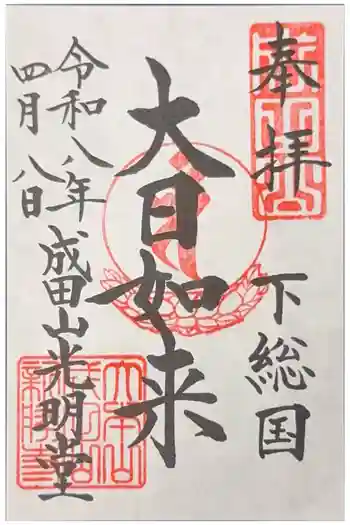 奉拝
下総国
大日如来
令和八年
四月八日
成田山光明堂